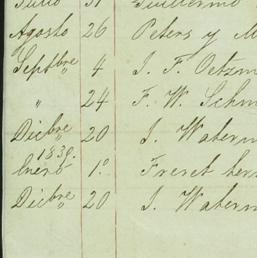 Julio 31 Guillermo
Agosto 26 Peters y M
Septbre 4 J. F. Oetzm
" 24 F. W. Schm
Dicbre 20 J. Waterm
1839.
Enero 1.º Freret her
Dicbre 20 J. Waterm